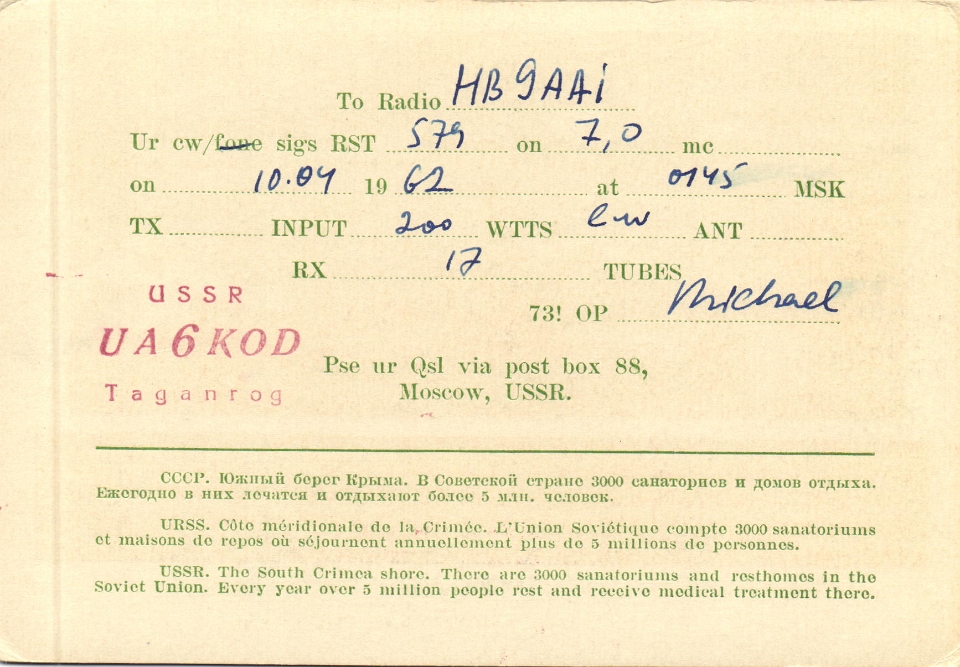 To Radio HB9AAI
Ur cw/fone sigs RST 579 on 7,0 mc
on 10.04 1962 at 0145 MSK
TX INPUT 200 WTTS cw ANT
RX 17 TUBES
73! OP Michael
USSR
UA6KOD
Taganrog
Pse ur Qsl via post box 88,
Moscow, USSR.
СССР. Южный берег Крыма. В Советской стране 3000 санаториев и домов отдыха.
Ежегодно в них лечатся и отдыхают более 5 млн. человек.
URSS. Côte méridionale de la Crimée. L'Union Soviétique compte 3000 sanatoriums
et maisons de repos où séjournent annuellement plus de 5 millions de personnes.
USSR. The South Crimea shore. There are 3000 sanatoriums and resthomes in the
Soviet Union. Every year over 5 million people rest and receive medical treatment there.